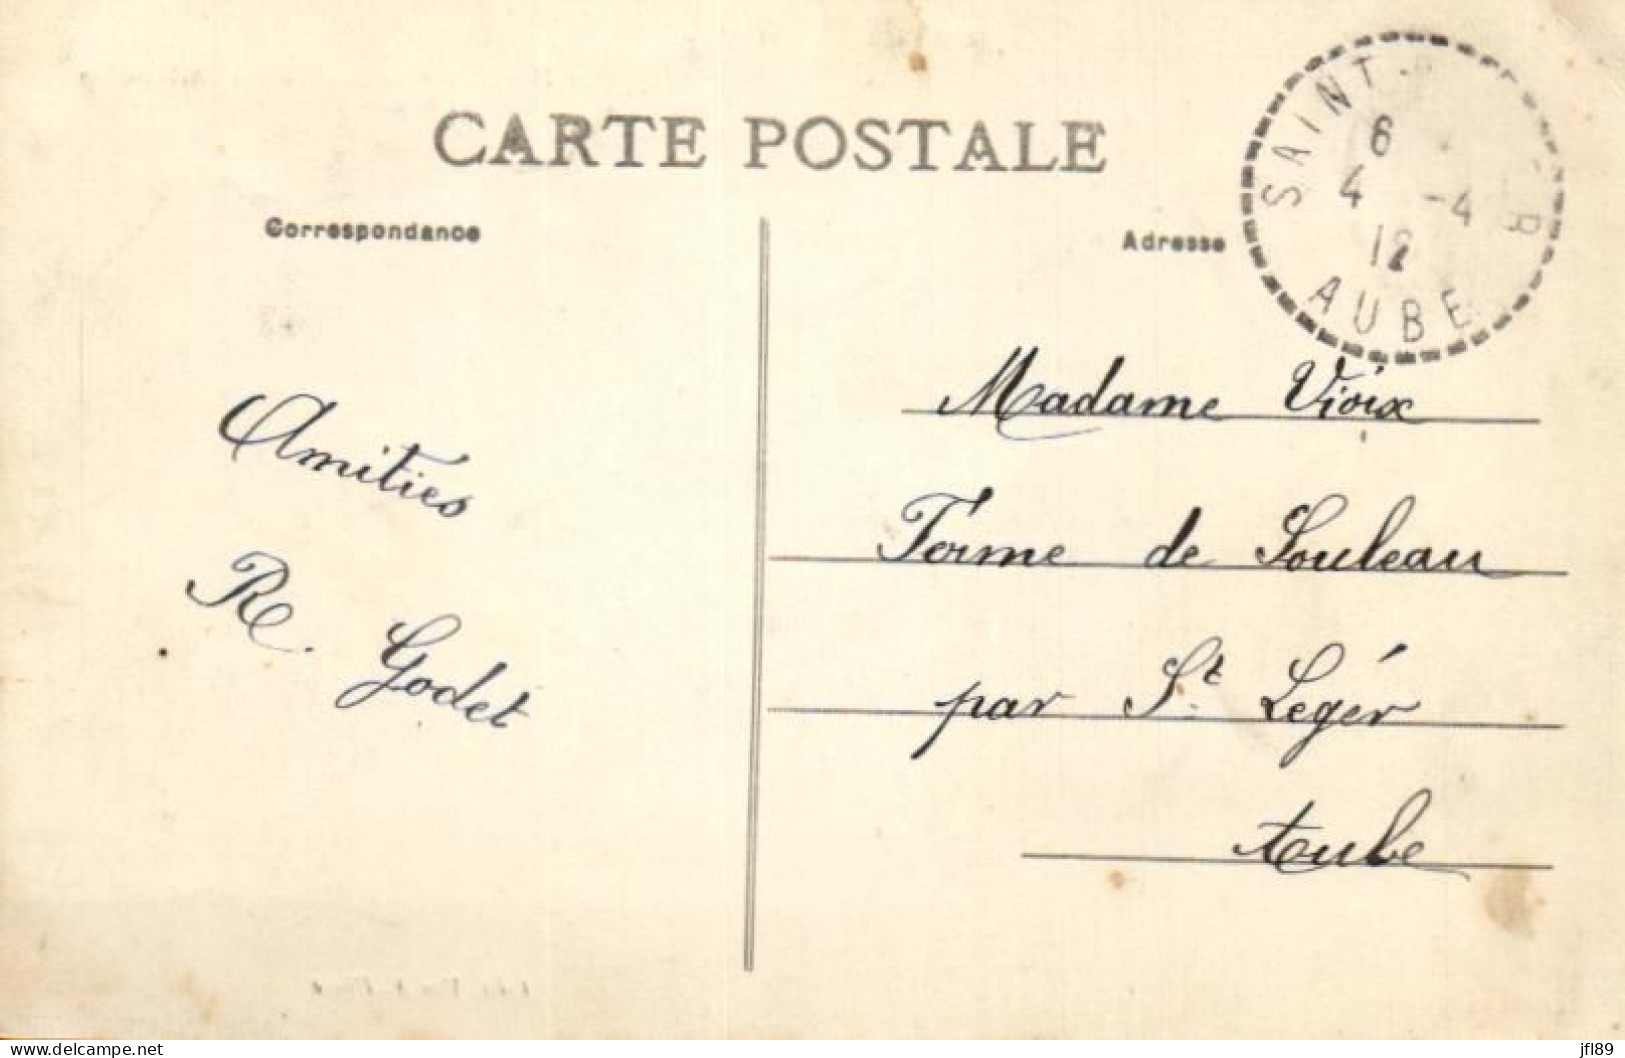 CARTE POSTALE
Correspondance
Adresse
SAINT-
6
4 -4
12
R
AUBE
Amitiés
Re. Godet
Madame Vioix
Ferme de Souleau
par St Légér
Aube
www.delcampe.net
jfl89